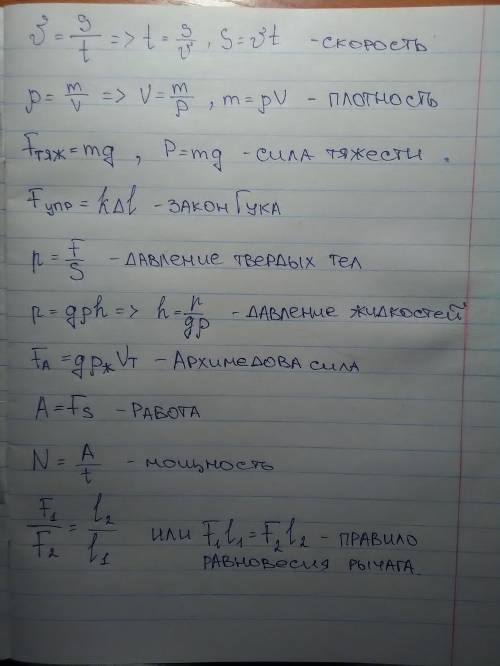 υ = S/t => t = S/υ, S = υt - скорость
ρ = m/V => V = m/ρ, m = ρV - плотность
Fтяж = mg, P = mg - сила тяжести.
Fупр = kΔl - закон Гука
p = F/S - давление твердых тел
p = gρh => h = p/gρ - давление жидкостей
FA = gρжVт - Архимедова сила
A = Fs - работа
N = A/t - мощность
F₁/F₂ = l₂/l₁ или F₁l₁ = F₂l₂ - правило
равновесия рычага.